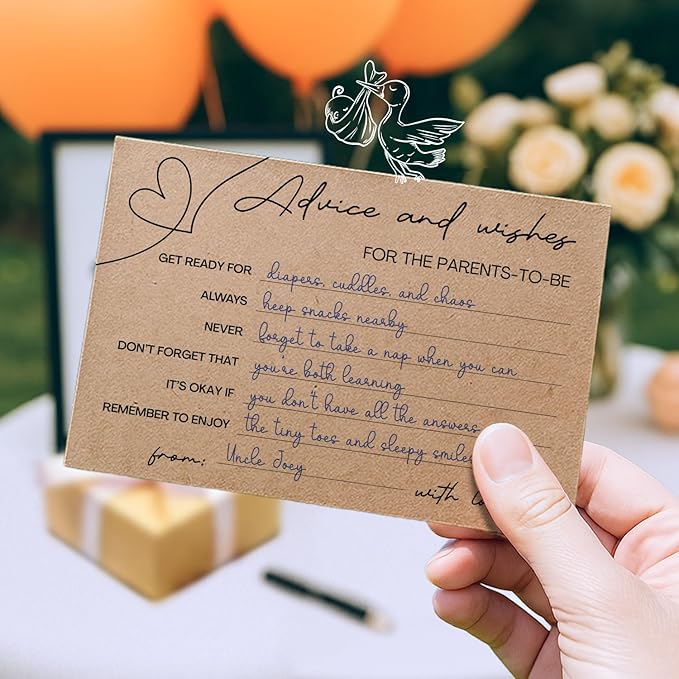 Advice and wishes
FOR THE PARENTS-TO-BE
GET READY FOR diapers, cuddles, and chaos
ALWAYS keep snacks nearby
NEVER forget to take a nap when you can
DON'T FORGET THAT you're both learning
IT'S OKAY IF you don't have all the answers
REMEMBER TO ENJOY the tiny toes and sleepy smiles
from: Uncle Joey with